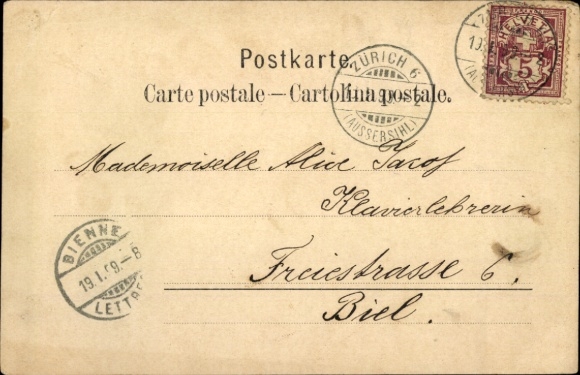 Postkarte.
Carte postale — Cartolina postale.
HELVETIA
5
ZÜRICH 6
(AUSSERSIHL)
Mademoiselle Alice Jacof
Klavierlehrerin
Freiestrasse 6.
Biel.
BIENNE
19.I.99.-8
LETTRES